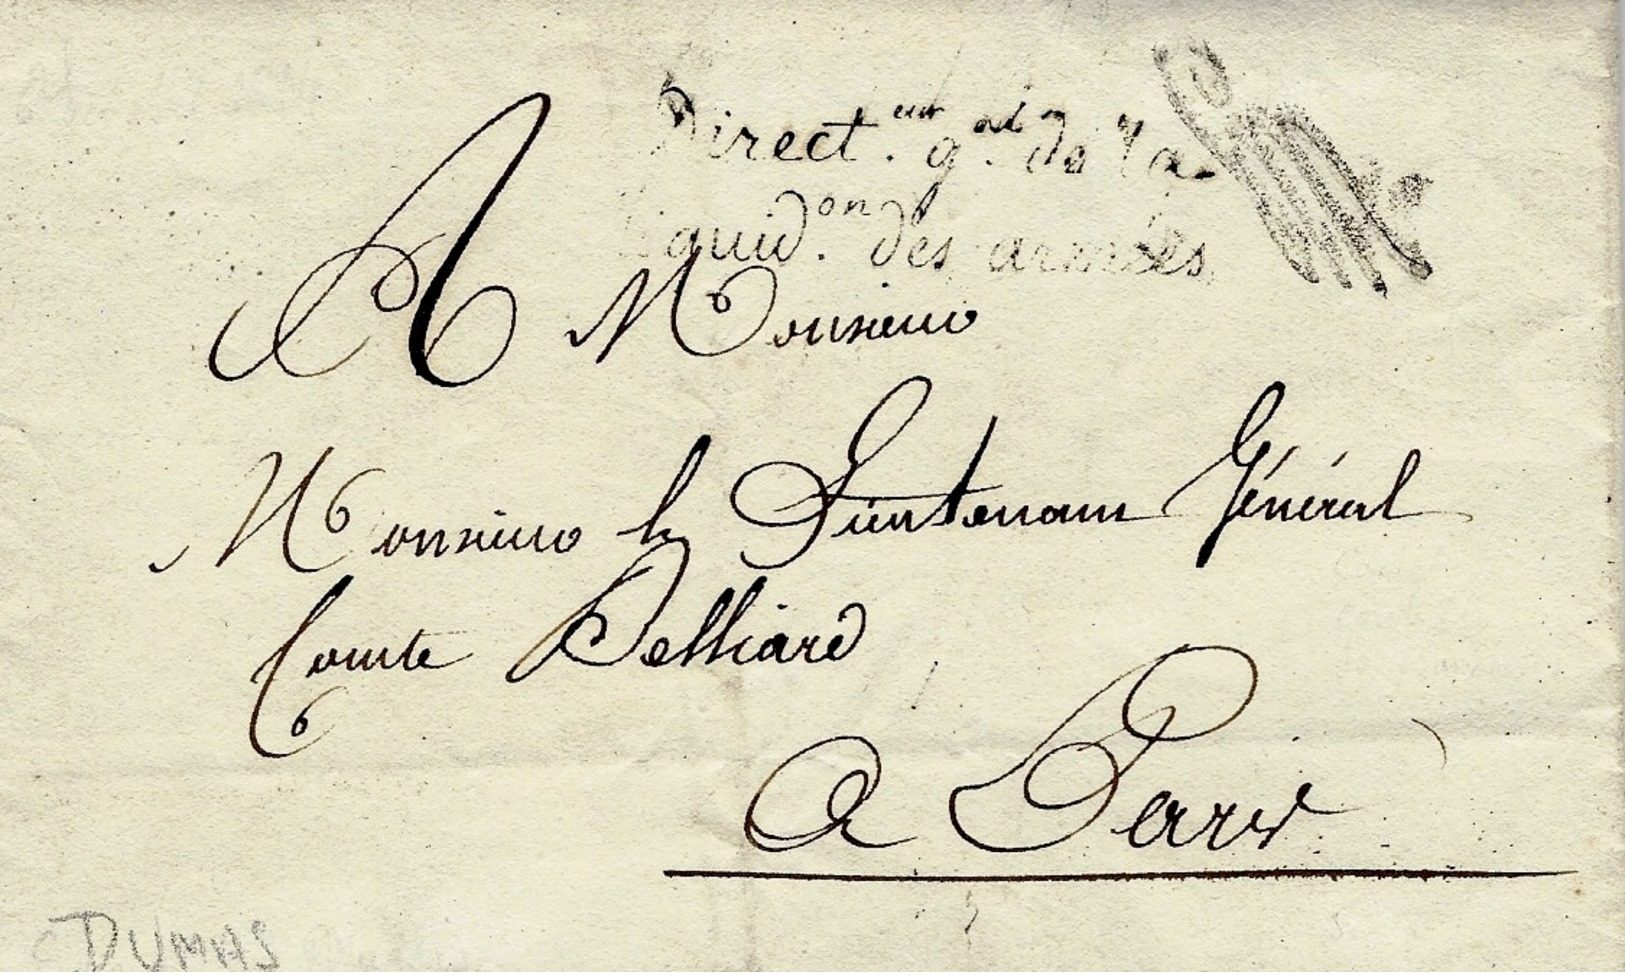 Direct.eur g.al de la
Liquid.on des armées
A Monsieur
Monsieur le Lieutenant Général
Comte Belliard
a Paris
DUMAS